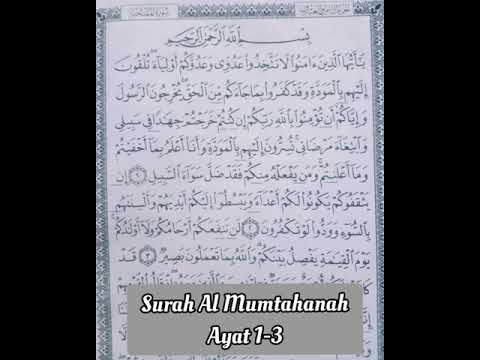 بِسْمِ ٱللَّهِ ٱلرَّحْمَٰنِ ٱلرَّحِيمِ
يَٰٓأَيُّهَا ٱلَّذِينَ ءَامَنُوا۟ لَا تَتَّخِذُوا۟ عَدُوِّى وَعَدُوَّكُمْ أَوْلِيَآءَ تُلْقُونَ
إِلَيْهِم بِٱلْمَوَدَّةِ وَقَدْ كَفَرُوا۟ بِمَا جَآءَكُم مِّنَ ٱلْحَقِّ يُخْرِجُونَ ٱلرَّسُولَ
وَإِيَّاكُمْ أَن تُؤْمِنُوا۟ بِٱللَّهِ رَبِّكُمْ إِن كُنتُمْ خَرَجْتُمْ جِهَٰدًا فِى سَبِيلِى
وَٱبْتِغَآءَ مَرْضَاتِى تُسِرُّونَ إِلَيْهِم بِٱلْمَوَدَّةِ وَأَنَا۠ أَعْلَمُ بِمَآ أَخْفَيْتُمْ
وَمَآ أَعْلَنتُمْ وَمَن يَفْعَلْهُ مِنكُمْ فَقَدْ ضَلَّ سَوَآءَ ٱلسَّبِيلِ ١ إِن
يَثْقَفُوكُمْ يَكُونُوا۟ لَكُمْ أَعْدَآءً وَيَبْسُطُوٓا۟ إِلَيْكُمْ أَيْدِيَهُمْ وَأَلْسِنَتَهُم
بِٱلسُّوٓءِ وَوَدُّوا۟ لَوْ تَكْفُرُونَ ٢ لَن تَنفَعَكُمْ أَرْحَامُكُمْ وَلَآ أَوْلَٰدُكُمْ
يَوْمَ ٱلْقِيَٰمَةِ يَفْصِلُ بَيْنَكُمْ وَٱللَّهُ بِمَا تَعْمَلُونَ بَصِيرٌ ٣ قَدْ
Surah Al Mumtahanah
Ayat 1-3